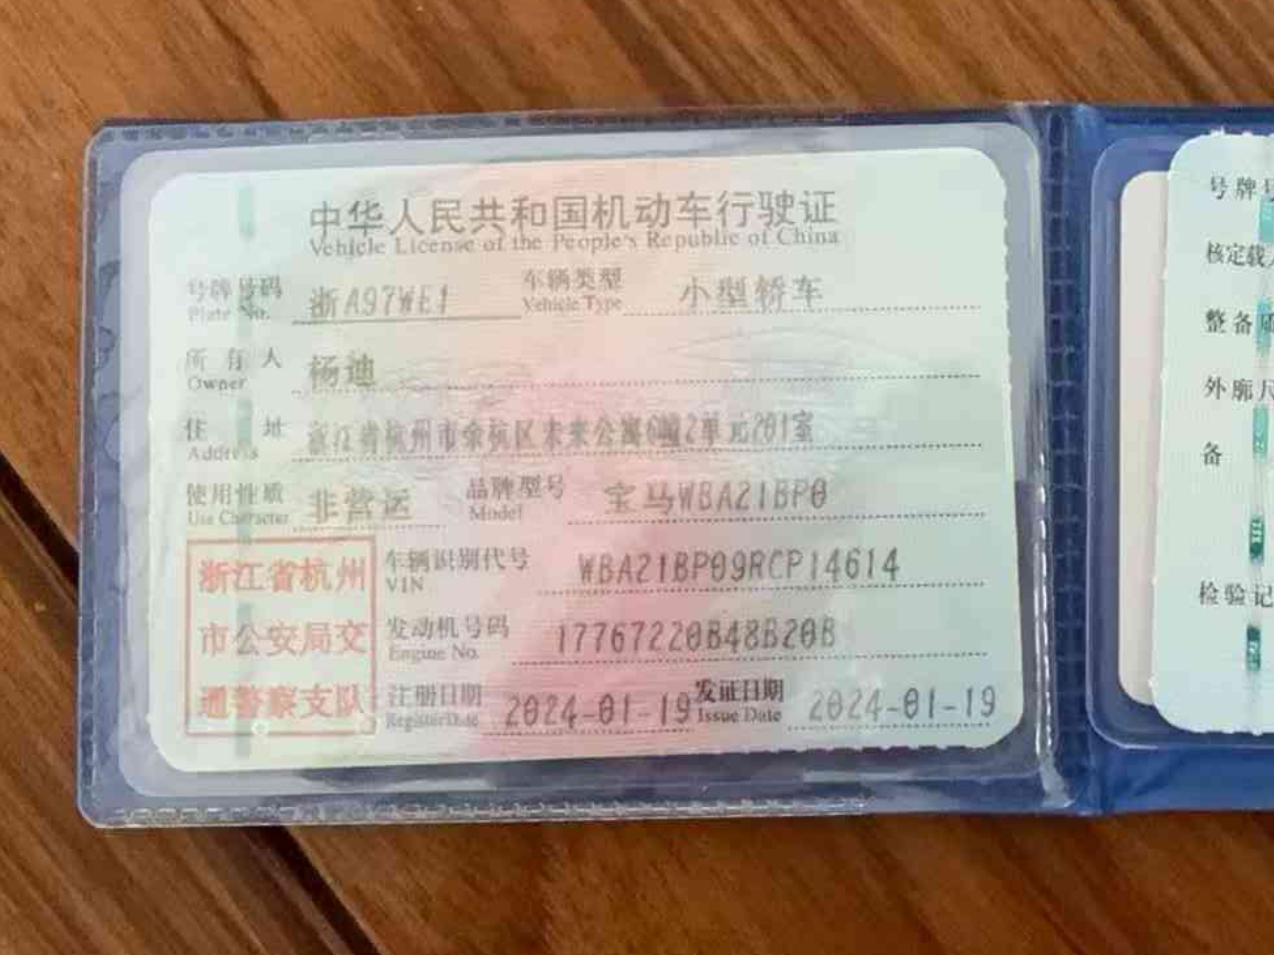 中华人民共和国机动车行驶证
Vehicle License of the People's Republic of China
号牌号码 浙A97WE1 车辆类型 小型轿车
Plate No. Vehicle Type
所有人 杨迪
Owner
住址 浙江省杭州市余杭区未来公寓6幢2单元201室
Address
使用性质 非营运 品牌型号 宝马WBA21BP0
Use Character Model
浙江省杭州
市公安局交
通警察支队
车辆识别代号 WBA21BP09RCP14614
VIN
发动机号码 17767220B48B20B
Engine No.
注册日期 2024-01-19 发证日期 2024-01-19
Register Date Issue Date
号牌
核定载
整备
外廓
备
检验记